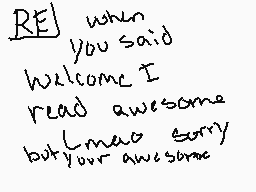 RE when
you said
Welcome I
read awesome
Lmao sorry
but your awesome